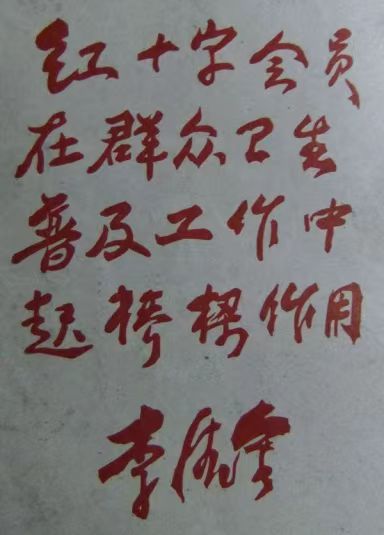 红十字会员
在群众卫生
普及工作中
起桥樑作用
李德全